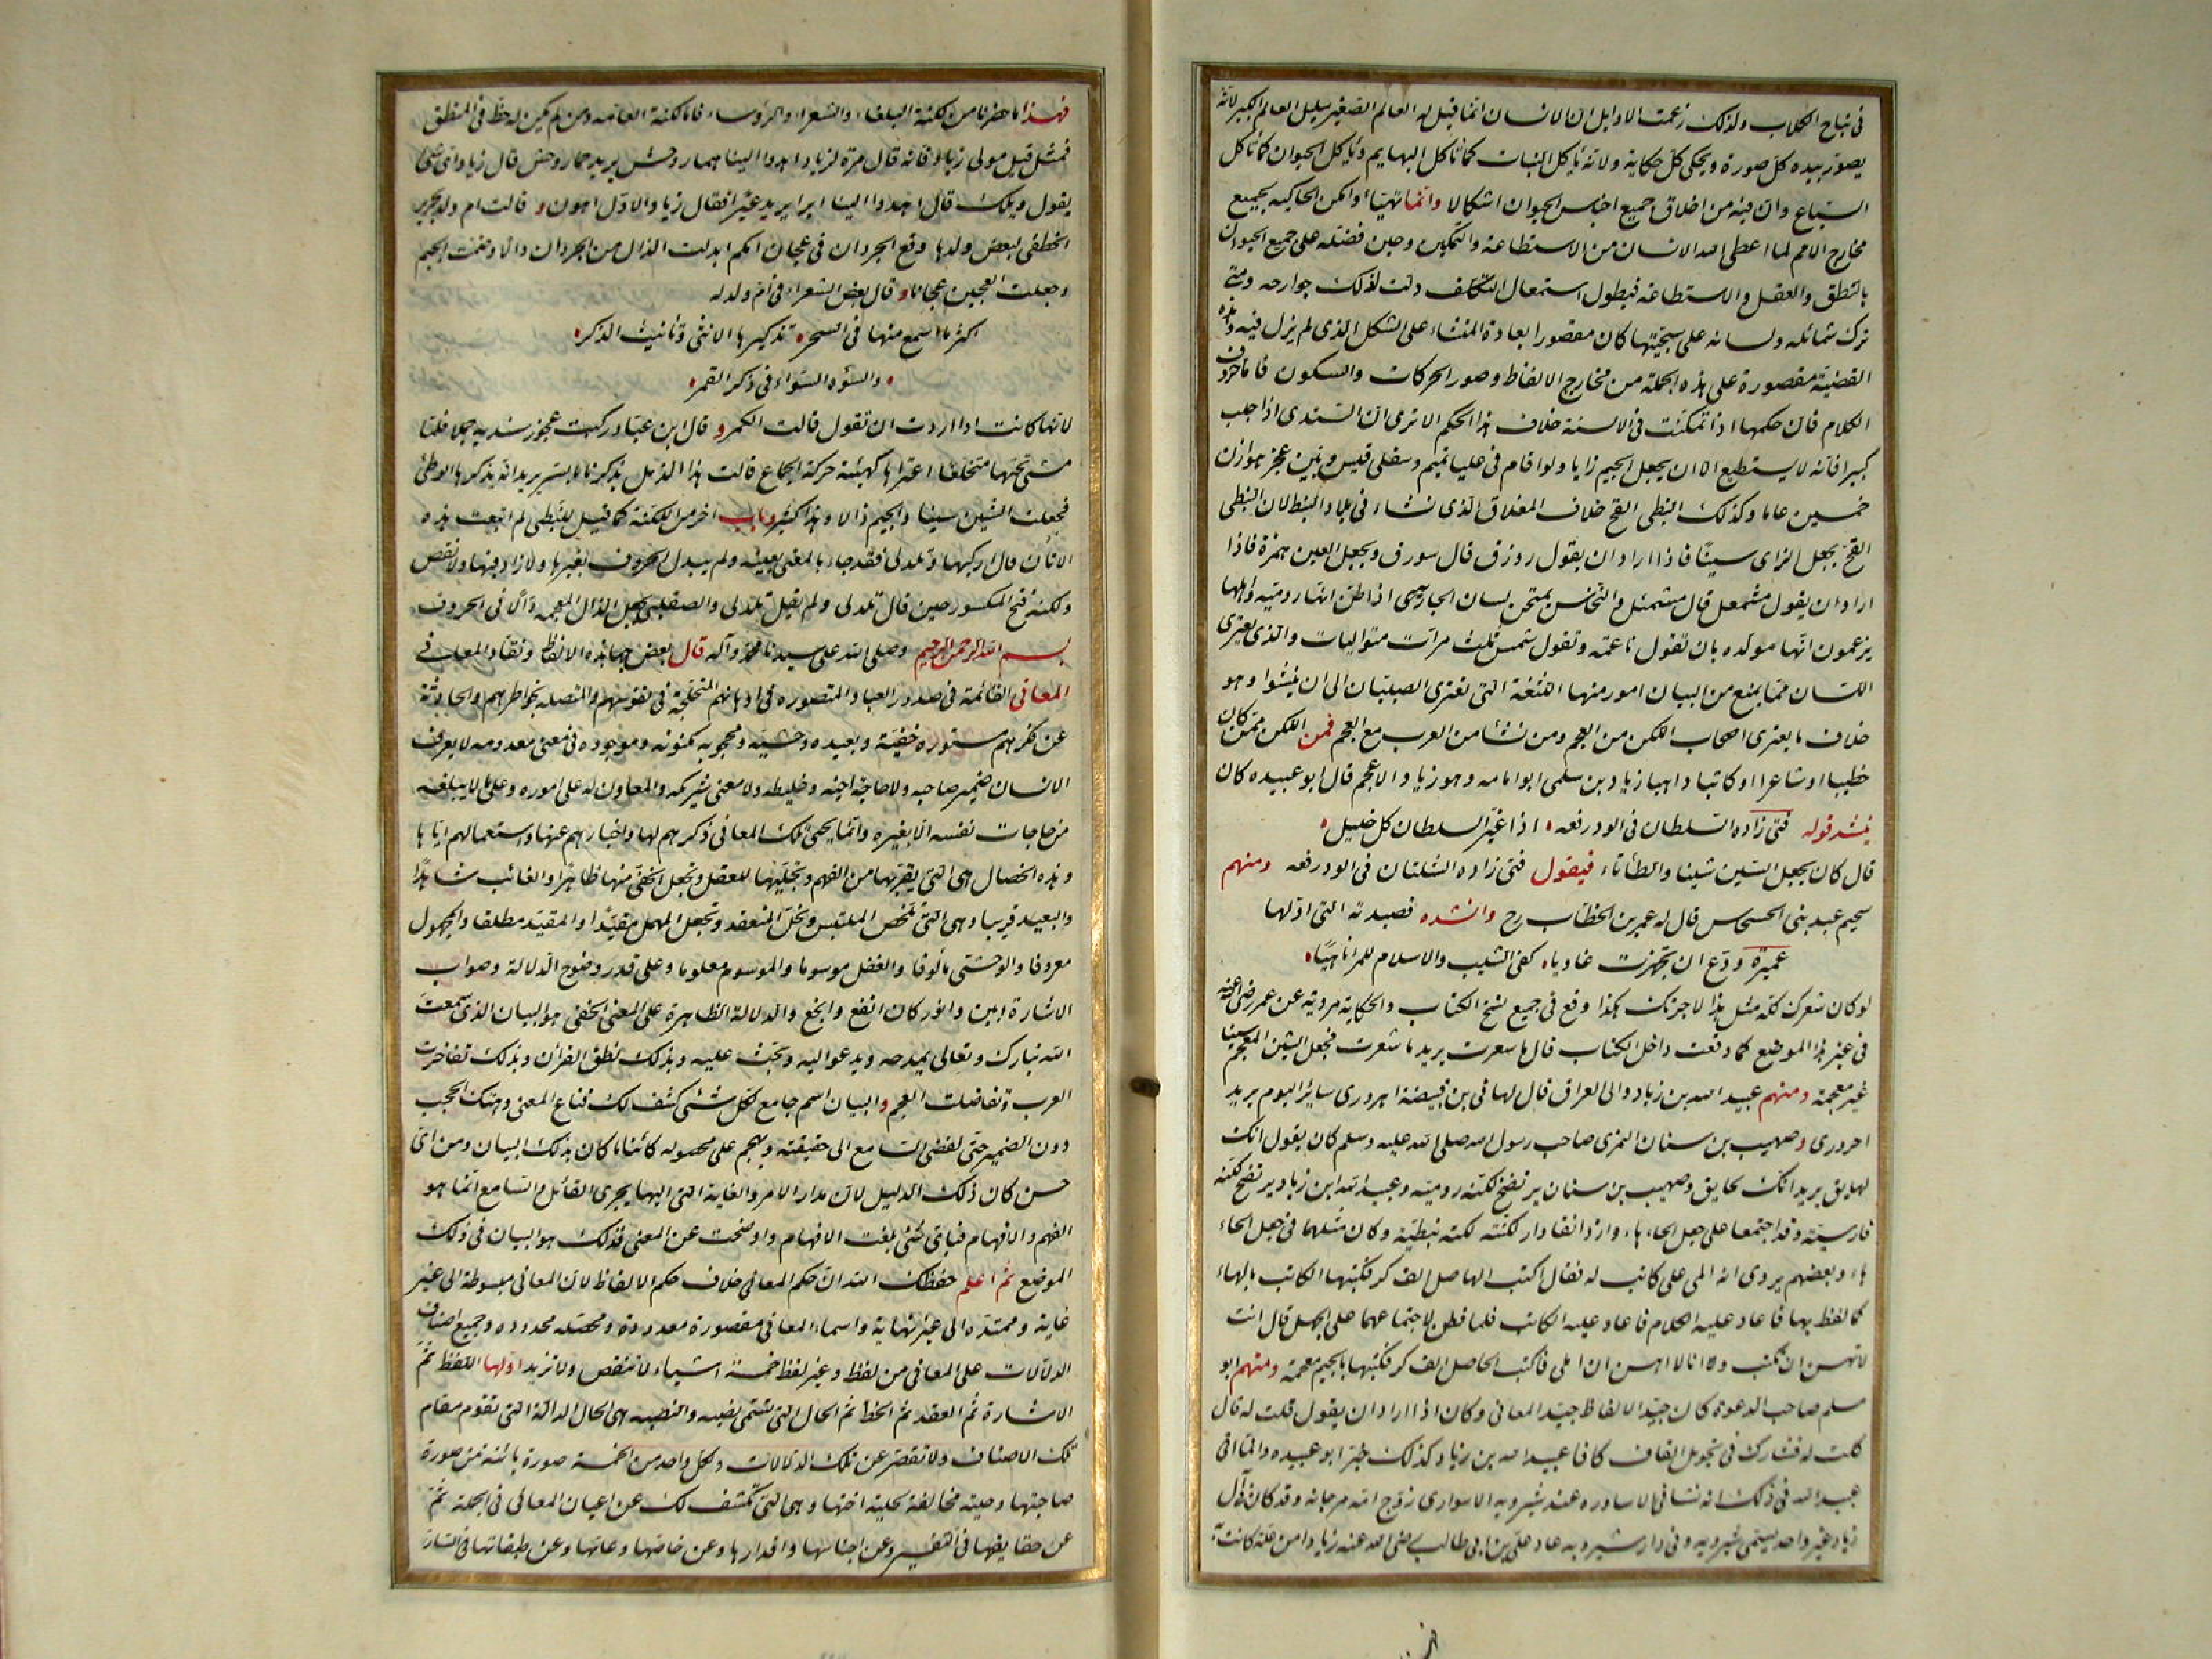 فى نباح الكلاب ولذلك زعمت الاوايل ان الانسان انما قيل له العالم الصغير سليل العالم الكبير لانه
يصور بيده كل صورة ويحكى كل حكاية ولانه ياكل النبات كما تاكل البهايم وياكل الحيوان كما تاكل
السباع وان فيه من اخلاق جميع اجناس الحيوان اشكالا وانما تهيّأ وامكن الحاكيه بجميع
مخارج الامم لما اعطى الله الانسان من الاستطاعة والتمكين وحين فضله على جميع الحيوان
بالنطق والعقل والاستطاعة فبطول استعمال التكلف ذلت لذلك جوارحه ومتى
ترك شمائله ولسانه على سجيتها كان مقصورا بعادة المنشاء على الشكل الذى لم يزل فيه وهذه
القضية مقصورة على هذه الجملة من مخارج الالفاظ وصور الحركات والسكون فاما حروف
الكلام فان حكمها اذا تمكنت فى الالسنة خلاف هذا الحكم الا ترى ان السندى اذا جلب
كبيرا فانه لا يستطيع الا ان يجعل الجيم زايا ولو اقام فى عليا تميم وسفلى قيس وبين عجز هوازن
خمسين عاما وكذلك النبطى القح خلاف المغلاق الذى نشاء فى بلاد النبط لان النبطى
القح يجعل الزاى سينًا فاذا اراد ان يقول زورق قال سورق ويجعل العين همزة فاذا
اراد ان يقول مشمعل قال مشمئل والنخاس يمتحن لسان الجاريه اذا ظن انها روميه واهلها
يزعمون انها مولده بان تقول ناعمه وتقول شمس ثلث مرات متواليات والذى يعترى
اللسان مما يمنع من البيان امور منها اللثغة التى تعترى الصبيان الى ان ينشوا وهو
خلاف ما يعترى اصحاب اللكن من العجم ومن نشا من العرب مع العجم فمن اللكن ممن كان
خطيبا او شاعرا او كاتبا داهيا زياد بن سلمى ابو امامه وهو زياد الاعجم قال ابو عبيده كان
ينشد قوله فتى زاده السلطان فى الود رفعه اذا غيّر السلطان كل خليل
قال كان يجعل السين شينا والطاء تاء فيقول فتى زاده الشلتان فى الود رفعه ومنهم
سحيم عبد بنى الحسحاس قال له عمر بن الخطاب رح وانشده قصيدته التى اوّلها
عميرة ودّع ان تجهزت غاديا كفى الشيب والاسلام للمرء ناهيًا
لو كان شعرك كله مثل هذا لاجزتك هكذا وقع فى جميع نسخ الكتاب والحكاية مروية عن عمر رضى الله عنه
فى غير هذا الموضع كما وقعت داخل الكتاب قال ما سعرت يريد ما شعرت فجعل الشين المعجم سينا
غير معجمة ومنهم عبيد الله بن زياد والى العراق قال لهانى بن قبيصة اهرورى سائر اليوم يريد
احرورى وصهيب بن سنان النمرى صاحب رسول الله صلى الله عليه وسلم كان يقول انك
لهايق يريد انك لحايق وصهيب بن سنان يرتضخ لكنة روميه وعبيد الله ابن زياد يرتضخ لكنه
فارسية وقد اجتمعا على جعل الحاء هاء وازدانقاذار لكنته لكنه نبطيّة وكان مثلهما فى جعل الحاء
هاء وبعضهم يروى انه املى على كاتب له فقال اكتب الهاصل الف كر فكتبها الكاتب بالهاء
كما لفظ بها فاعاد عليه الكلام فاعاد عليه الكاتب فلما فطن لاجتماعهما على الجهل قال انت
لا تهسن ان تكتب وانا لا اهسن ان املى فاكتب الجاصل الف كر فكتبها بالجيم معجمة ومنهم ابو
مسلم صاحب الدعوة كان جيّد الالفاظ جيّد المعانى وكان اذا اراد ان يقول قلت له قال
كلت له فشارك فى تحويل القاف كافا عبيد الله بن زياد كذلك خبّر ابو عبيده وانما اتى
عبيد الله فى ذلك انه نشا فى الاساوره عند شيرويه الاسوارى زوج امه مرجانه وقد كان فى آل
زياد غير واحد يسمى شيرويه وفى دار شيرويه عاد على بن ابى طالب رضى الله عنه زيادا من علة كانت به
فهذا ما حضرنا من لكنة البلغاء والشعراء والرؤساء فاما لكنة العامه ومن لم يكن له حظ فى المنطق
فمثل قيل مولى زياد فانه قال مرة لزياد اهدوا الينا همار وهش يريد حمار وحش قال زياد اى شئ
يقول ويلك قال اهدوا الينا ايرا يريد عيرًا فقال زياد الاوّل اهون وقالت ام ولد لجرير
الخطفى لبعض ولدها وقع الجردان فى عجان امكم ابدلت الذال من الجردان دالا وضمت الجيم
وجعلت العجين عجانا وقال بعض الشعراء فى ام ولد له
اكثر ما اسمع منها فى السحر تذكيرها الانثى وتأنيث الذكر
والسؤه السوآء فى ذكر القمر
لانها كانت اذا اردت ان تقول قالت الكمر وقال ابن عباد ركبت عجوز سنديه جملا فلما
مشى تحتها متخلعا اعتراها كهيئة حركة الجماع قالت هذا الذمل يذكرنا بالسر يريد انه يذكرها الوطئ
فجعلت الشين سينا والجيم ذالا وهذا كثير وباب آخر من اللكنة كما قيل لنبطى لم ابتعت هذه
الاتان قال اركبها وتلدلى فقد جاء بالمعنى بعينه ولم يبدل الحروف بغيرها ولا زاد فيها ولا نقص
ولكنه فتح المكسور حين قال تلدلى ولم يقل تلدلى والصقلبى يجعل الذال المعجمه دالا فى الحروف
بسم الله الرحمن الرحيم وصلى الله على سيدنا محمد وآله قال بعض جهابذة الالفاظ ونقاد المعانى
المعانى القائمة فى صدور العباد المتصوره فى اذهانهم المتخلجة فى نفوسهم والمتصله بخواطرهم والحادثة
عن فكرهم مستوره خفيّة وبعيده وحشيّه ومحجوبه مكنونه وموجوده فى معنى معدومه لا يعرف
الانسان ضمير صاحبه ولا حاجة اخيه وخليطه ولا معنى شريكه والمعاون له على اموره وعلى ما لا يبلغه
من حاجات نفسه الا بغيره وانما يحيى تلك المعانى ذكرهم لها واخبارهم عنها واستعمالهم اياها
وهذه الخصال هى التى تقربها من الفهم وتجليها للعقل وتجعل الخفى منها ظاهرا والغائب شاهدًا
والبعيد قريبا وهى التى تلخص الملتبس وتحل المنعقد وتجعل المهمل مقيّدا والمقيّد مطلقا والمجهول
معروفا والوحشى مألوفا والغفل موسوما والموسوم معلوما وعلى قدر وضوح الدلالة وصواب
الاشارة ابين وانور كان انفع وانجع والدلالة الظاهرة على المعنى الخفى هو البيان الذى سمعت
الله تبارك وتعالى يمدحه ويدعو اليه ويحث عليه وبذلك نطق القرآن وبذلك تفاخرت
العرب وتفاضلت العجم والبيان اسم جامع لكل شئ كشف لك قناع المعنى وهتك الحجب
دون الضمير حتى يفضى السامع الى حقيقته ويهجم على محصوله كائنا ما كان بذلك البيان ومن اى
جنس كان ذلك الدليل لان مدار الامر والغاية التى اليها يجرى القائل والسامع انما هو
الفهم والافهام فباى شئ بلغت الافهام واوضحت عن المعنى فذلك هو البيان فى ذلك
الموضع ثم اعلم حفظك الله ان حكم المعانى خلاف حكم الالفاظ لان المعانى مبسوطة الى غير
غاية وممتدّه الى غير نهاية واسماء المعانى مقصورة معدودة ومحصله محدوده وجميع اصناف
الدلالات على المعانى من لفظ وغير لفظ خمسة اشياء لا تنقص ولا تزيد اوّلها اللفظ ثم
الاشارة ثم العقد ثم الخط ثم الحال التى تسمى نصبه والنصبه هى الحال الدالة التى تقوم مقام
تلك الاصناف ولا تقصر عن تلك الدلالات ولكل واحد من الخمسة صورة بائنه من صورة
صاحبتها وحليه مخالفة لحلية اختها وهى التى تكشف لك عن اعيان المعانى فى الجملة ثم
عن حقايقها فى التفسير وعن اجناسها واقدارها وعن خاصها وعامها وعن طبقاتها فى السار